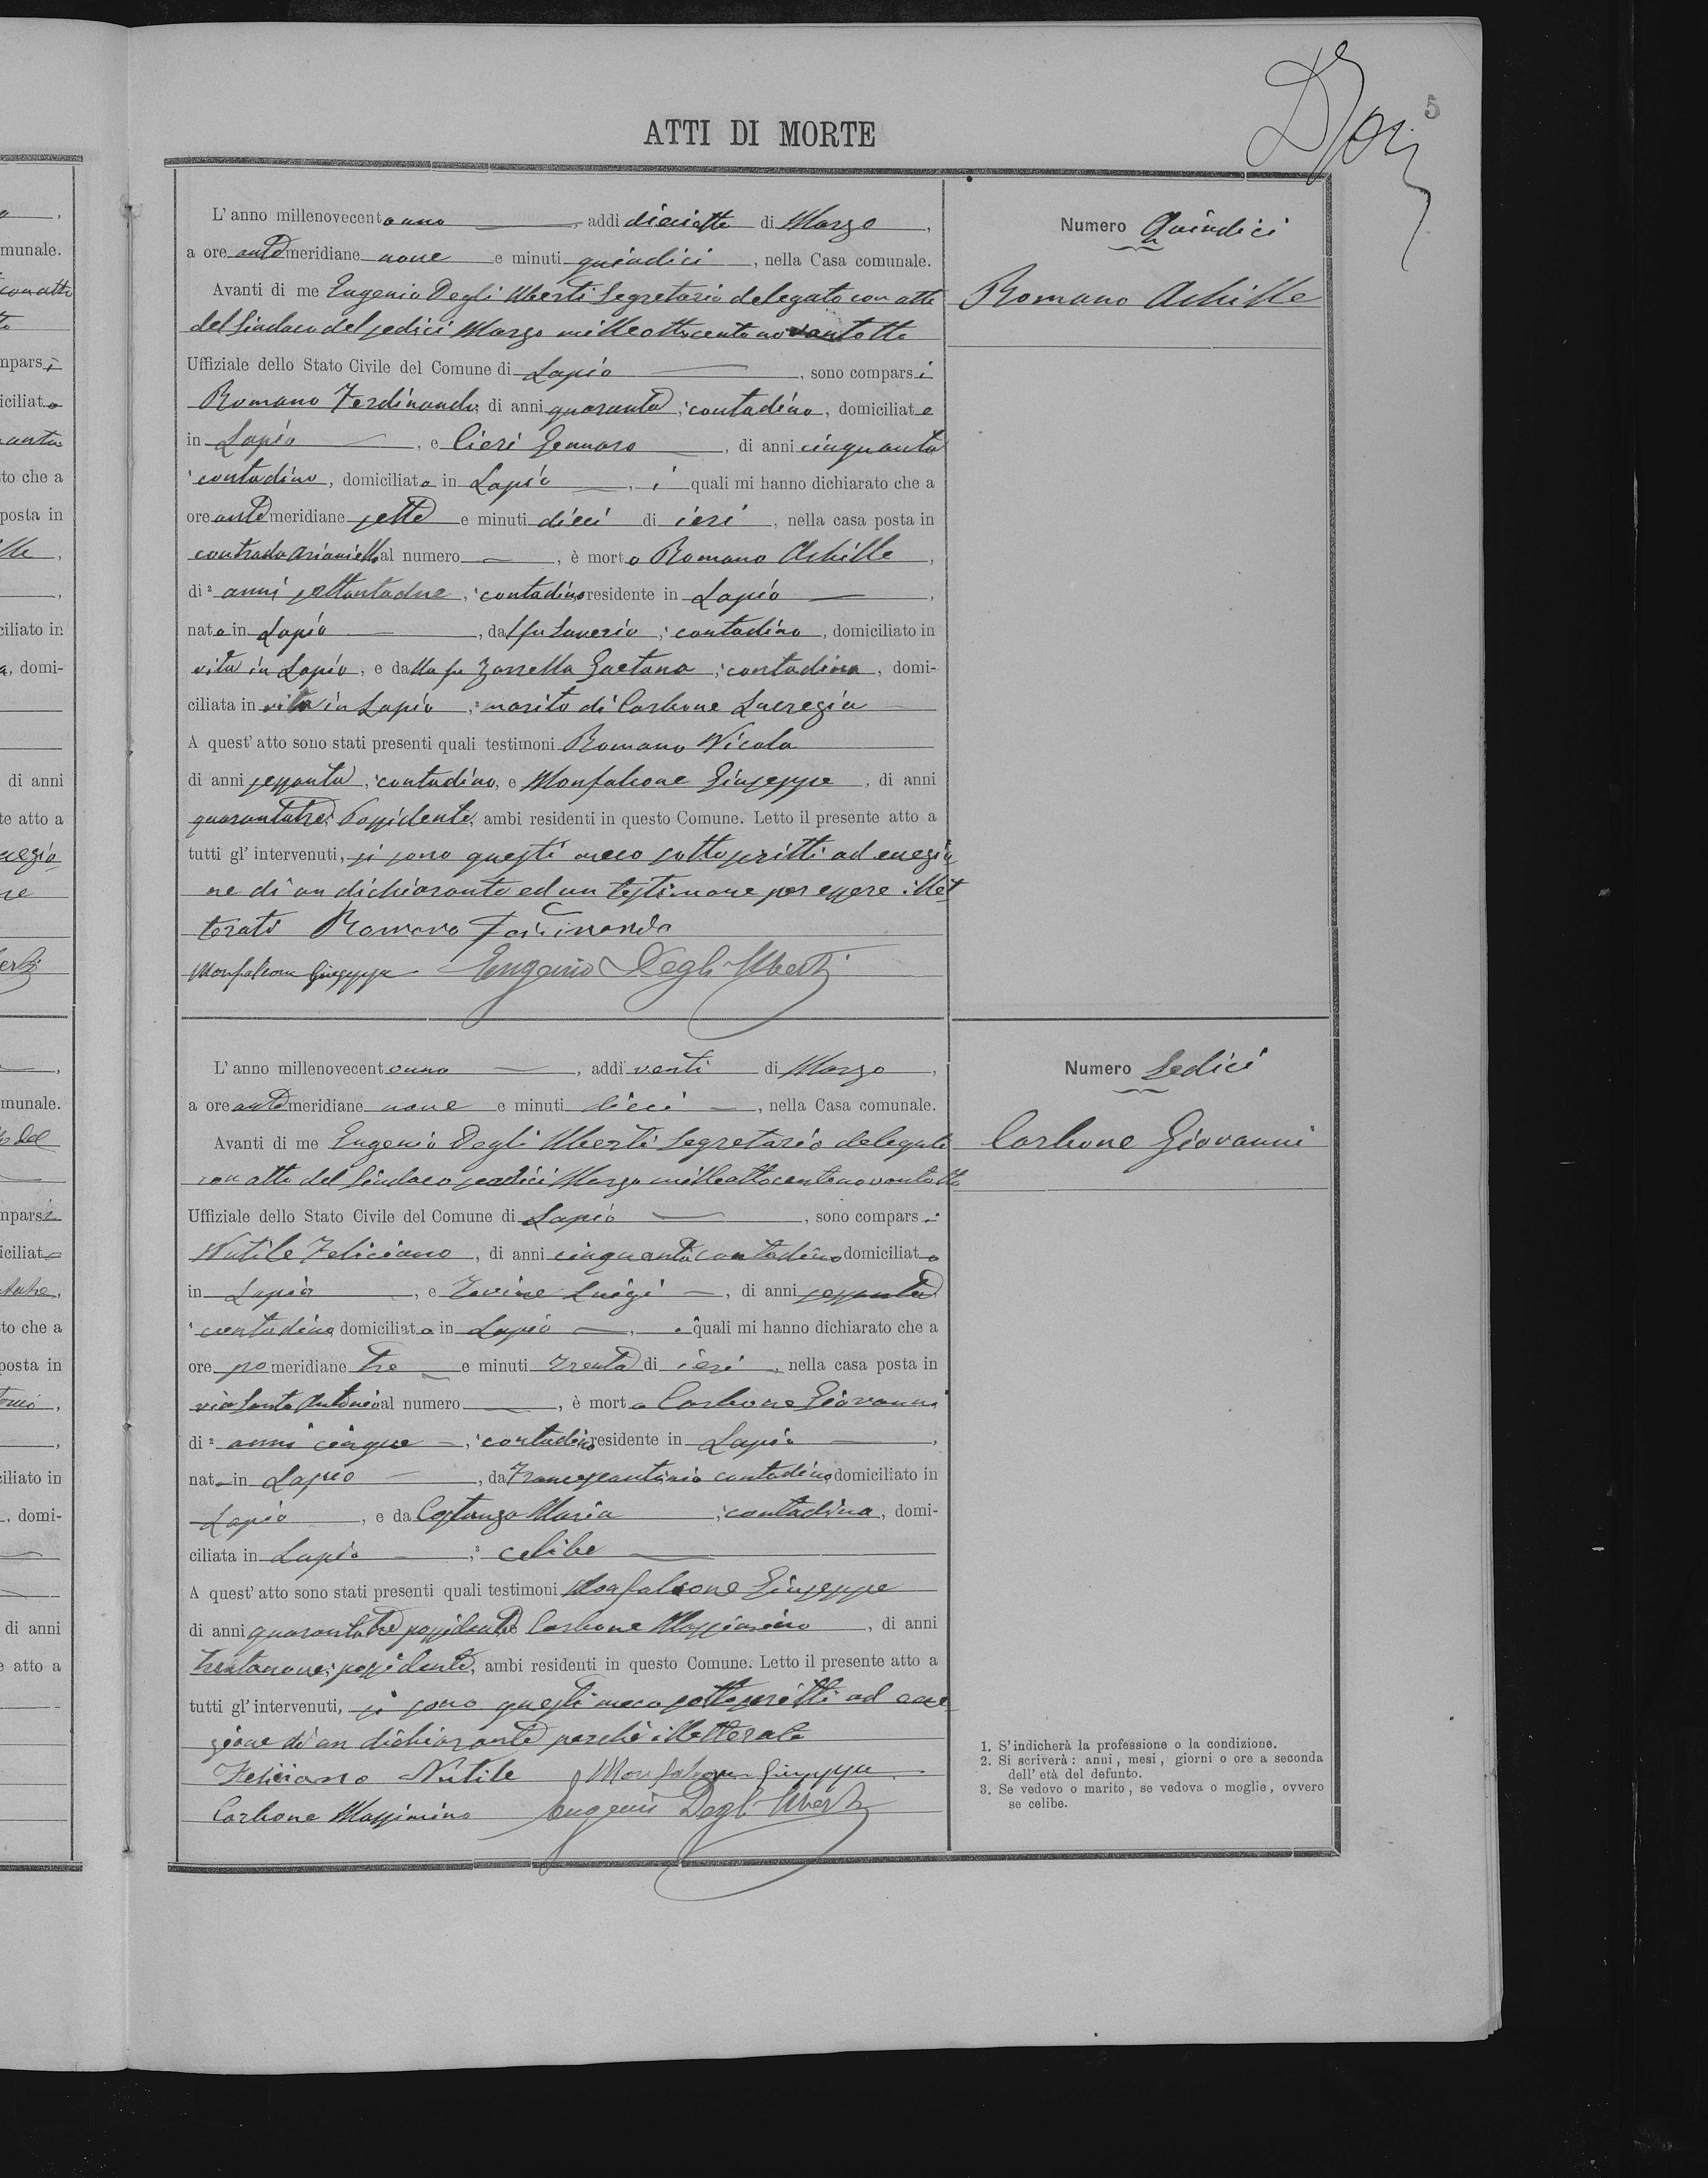 5
ATTI DI MORTE
L'anno millenovecentouno, addì diciotto di Marzo,
a ore antemeridiane nove e minuti quindici, nella Casa comunale.
Avanti di me Eugenio Degli Uberti Segretario delegato con atto
del Sindaco del sedici Marzo milleottocentonovantotto
Uffiziale dello Stato Civile del Comune di Lapio, sono comparsi
Romano Ferdinando, di anni quaranta, contadino, domiciliato
in Lapio, e Cieri Gennaro, di anni cinquanta
contadino, domiciliato in Lapio, i quali mi hanno dichiarato che a
ore antemeridiane sette e minuti dieci di ieri, nella casa posta in
contrada Arianiello al numero, è morto Romano Achille,
di anni settantadue, contadino residente in Lapio,
nato in Lapio, dal fu Saverio, contadino, domiciliato in
vita in Lapio, e dalla fu Zarrella Gaetana, contadina, domi-
ciliata in vita in Lapio, marito di Carbone Lucrezia
A quest'atto sono stati presenti quali testimoni Romano Nicola
di anni sessanta, contadino, e Monfalcone Giuseppe, di anni
quarantatre, Possidente, ambi residenti in questo Comune. Letto il presente atto a
tutti gl'intervenuti, si sono questi meco sottoscritti ad eccezio
ne di un dichiarante ed un testimone per essere illet
terati Romano Ferdinando
Monfalcone Giuseppe Eugenio Degli Uberti
Numero Quindici
Romano Achille
L'anno millenovecentouno, addì venti di Marzo,
a ore antemeridiane nove e minuti dieci, nella Casa comunale.
Avanti di me Eugenio Degli Uberti Segretario delegato
con atto del Sindaco sedici Marzo milleottocentonovantotto
Uffiziale dello Stato Civile del Comune di Lapio, sono comparsi
Nutile Feliciano, di anni cinquanta contadino domiciliato
in Lapio, e Iovine Luigi, di anni sessanta
contadino domiciliato in Lapio, i quali mi hanno dichiarato che a
ore pomeridiane tre e minuti trenta di ieri, nella casa posta in
via Santo Antonio al numero, è morto Carbone Giovanni
di anni cinque, contadino residente in Lapio,
nato in Lapio, da Francescantonio contadino domiciliato in
Lapio, e da Costanzo Maria, contadina, domi-
ciliata in Lapio, celibe
A quest'atto sono stati presenti quali testimoni Monfalcone Giuseppe
di anni quarantatre possidente Carbone Massimino, di anni
trentanove, possidente, ambi residenti in questo Comune. Letto il presente atto a
tutti gl'intervenuti, si sono questi meco sottoscritti ad ecce
zione di un dichiarante perchè illetterato
Feliciano Nutile Monfalcone Giuseppe
Carbone Massimino Eugenio Degli Uberti
Numero Sedici
Carbone Giovanni
1. S'indicherà la professione o la condizione.
2. Si scriverà: anni, mesi, giorni o ore a seconda
dell'età del defunto.
3. Se vedovo o marito, se vedova o moglie, ovvero
se celibe.